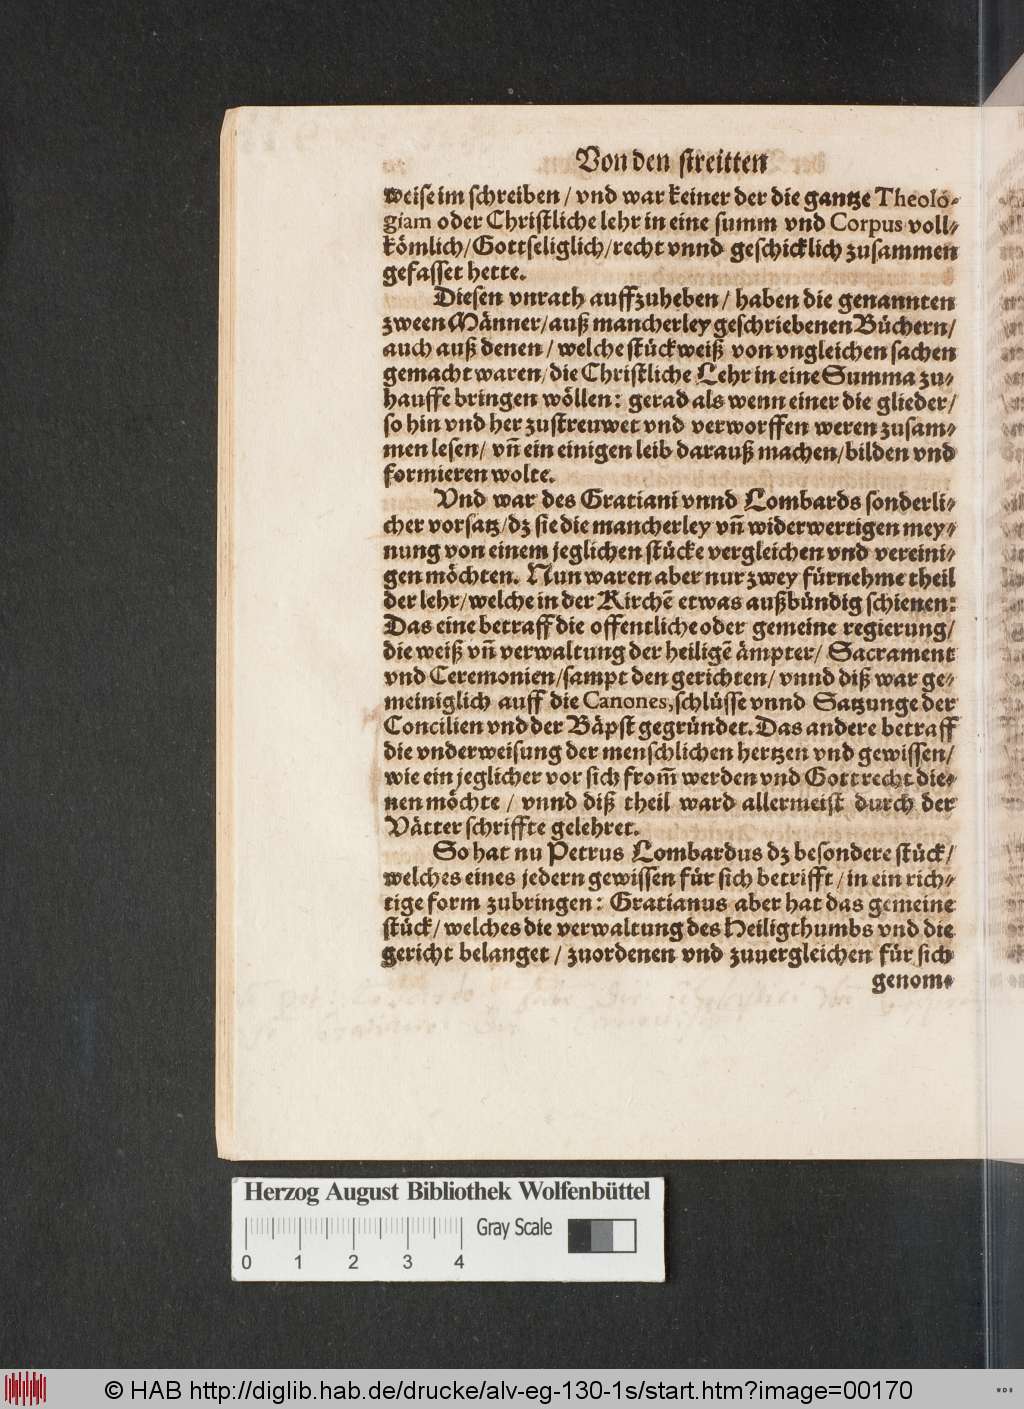 Von den streitten
weise im schreiben / vnd war keiner der die gantze Theolo-
giam oder Christliche lehr in eine summ vnd Corpus voll-
kömlich/Gottseliglich/recht vnnd geschicklich zusammen
gefasset hette.
Diesen vnrath auffzuheben / haben die genannten
zween Männer/auß mancherley geschriebenen Büchern/
auch auß denen / welche stückweiß von vngleichen sachen
gemacht waren/die Christliche Lehr in eine Summa zu-
hauffe bringen wöllen: gerad als wenn einer die glieder/
so hin vnd her zustreuwet vnd verworffen weren zusam-
men lesen/ vñ ein einigen leib darauß machen/bilden vnd
formieren wolte.
Vnd war des Gratiani vnnd Lombards sonderli-
cher vorsatz/dz sie die mancherley vñ widerwertigen mey-
nung von einem jeglichen stücke vergleichen vnd vereini-
gen möchten. Nun waren aber nur zwey fürnehme theil
der lehr/welche in der Kirchē etwas außbündig schienen:
Das eine betraff die offentliche oder gemeine regierung/
die weiß vñ verwaltung der heiligē ämpter/ Sacrament
vnd Ceremonien/sampt den gerichten/ vnnd diß war ge-
meiniglich auff die Canones,schlüsse vnnd Satzunge der
Concilien vnd der Bäpst gegründet. Das andere betraff
die vnderweisung der menschlichen hertzen vnd gewissen/
wie ein jeglicher vor sich from̃ werden vnd Gott recht die-
nen möchte / vnnd diß theil ward allermeist durch der
Vätter schriffte gelehret.
So hat nu Petrus Lombardus dz besondere stück/
welches eines jedern gewissen für sich betrifft / in ein rich-
tige form zubringen: Gratianus aber hat das gemeine
stück/ welches die verwaltung des Heiligthumbs vnd die
gericht belanget / zuordenen vnd zuuergleichen für sich
genom-
Herzog August Bibliothek Wolfenbüttel
Gray Scale
0 1 2 3 4
© HAB http://diglib.hab.de/drucke/alv-eg-130-1s/start.htm?image=00170